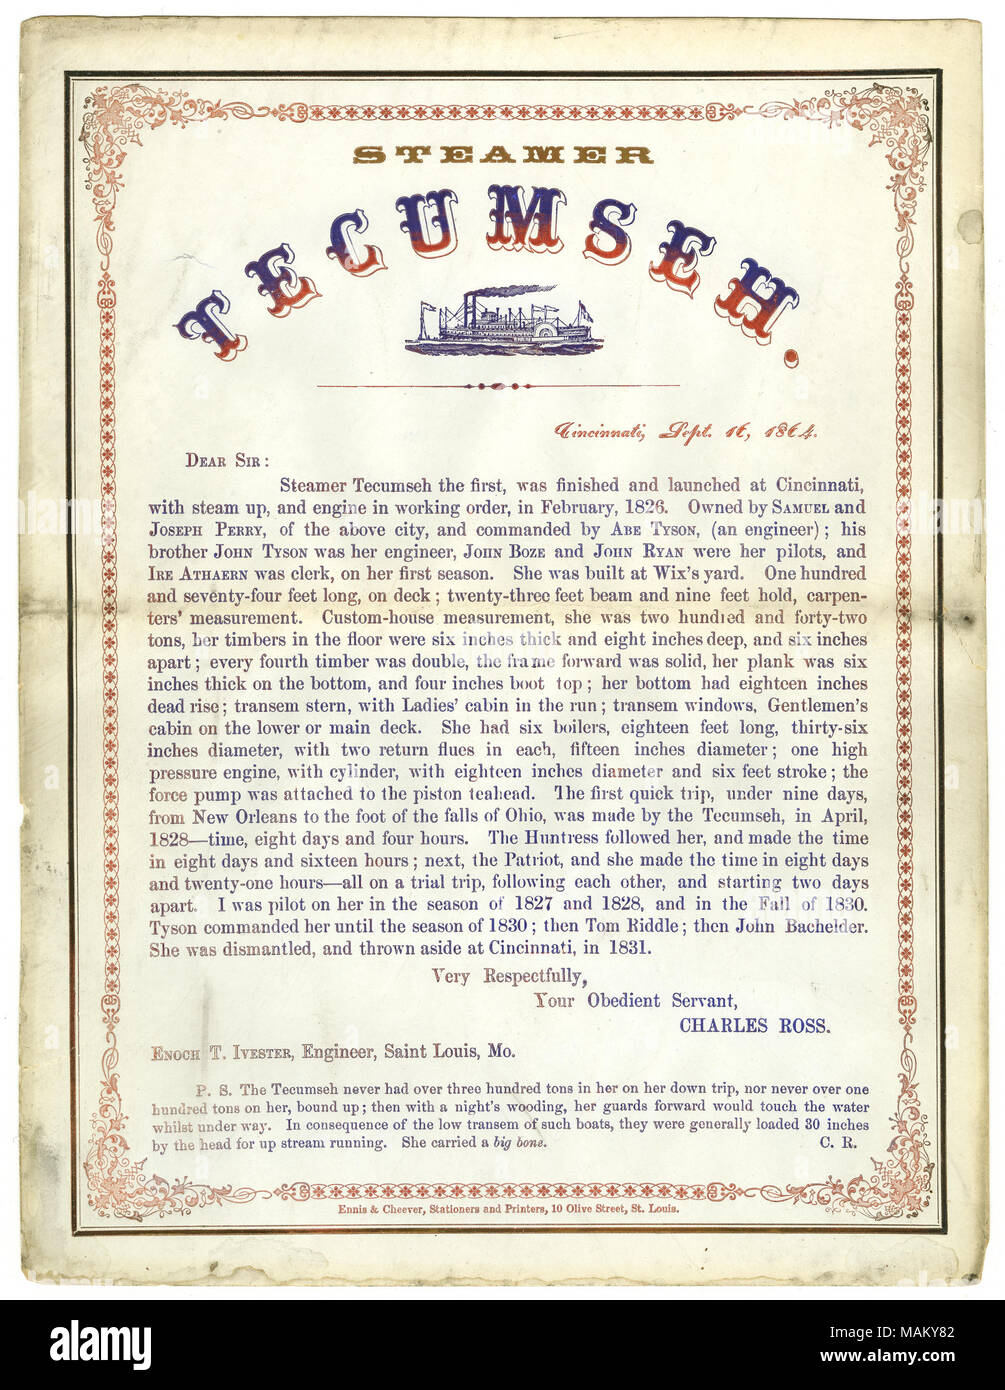 STEAMER
TECUMSEH.
Cincinnati, Sept. 16, 1864.
DEAR SIR:
Steamer Tecumseh the first, was finished and launched at Cincinnati,
with steam up, and engine in working order, in February, 1826. Owned by SAMUEL and
JOSEPH PERRY, of the above city, and commanded by ABE TYSON, (an engineer); his
brother JOHN TYSON was her engineer, JOHN BOZE and JOHN RYAN were her pilots, and
IRE ATHAERN was clerk, on her first season. She was built at Wix's yard. One hundred
and seventy-four feet long, on deck; twenty-three feet beam and nine feet hold, carpen-
ters' measurement. Custom-house measurement, she was two hundred and forty-two
tons, her timbers in the floor were six inches thick and eight inches deep, and six inches
apart; every fourth timber was double, the frame forward was solid, her plank was six
inches thick on the bottom, and four inches boot top; her bottom had eighteen inches
dead rise; transem stern, with Ladies' cabin in the run; transem windows, Gentlemen's
cabin on the lower or main deck. She had six boilers, eighteen feet long, thirty-six
inches diameter, with two return flues in each, fifteen inches diameter; one high
pressure engine, with cylinder, with eighteen inches diameter and six feet stroke; the
force pump was attached to the piston teahead. The first quick trip, under nine days,
from New Orleans to the foot of the falls of Ohio, was made by the Tecumseh, in April,
1828—time, eight days and four hours. The Huntress followed her, and made the time
in eight days and sixteen hours; next, the Patriot, and she made the time in eight days
and twenty-one hours—all on a trial trip, following each other, and starting two days
apart. I was pilot on her in the season of 1827 and 1828, and in the Fall of 1830.
Tyson commanded her until the season of 1830; then Tom Riddle; then John Bachelder.
She was dismantled, and thrown aside at Cincinnati, in 1831.
Very Respectfully,
Your Obedient Servant,
CHARLES ROSS.
ENOCH T. IVESTER, Engineer, Saint Louis, Mo.
P. S. The Tecumseh never had over three hundred tons in her on her down trip, nor never over one
hundred tons on her, bound up; then with a night's wooding, her guards forward would touch the water
whilst under way. In consequence of the low transem of such boats, they were generally loaded 30 inches
by the head for up stream running. She carried a big bone. C. R.
Ennis & Cheever, Stationers and Printers, 10 Olive Street, St. Louis.
alamy
Image ID: MAKY82
www.alamy.com